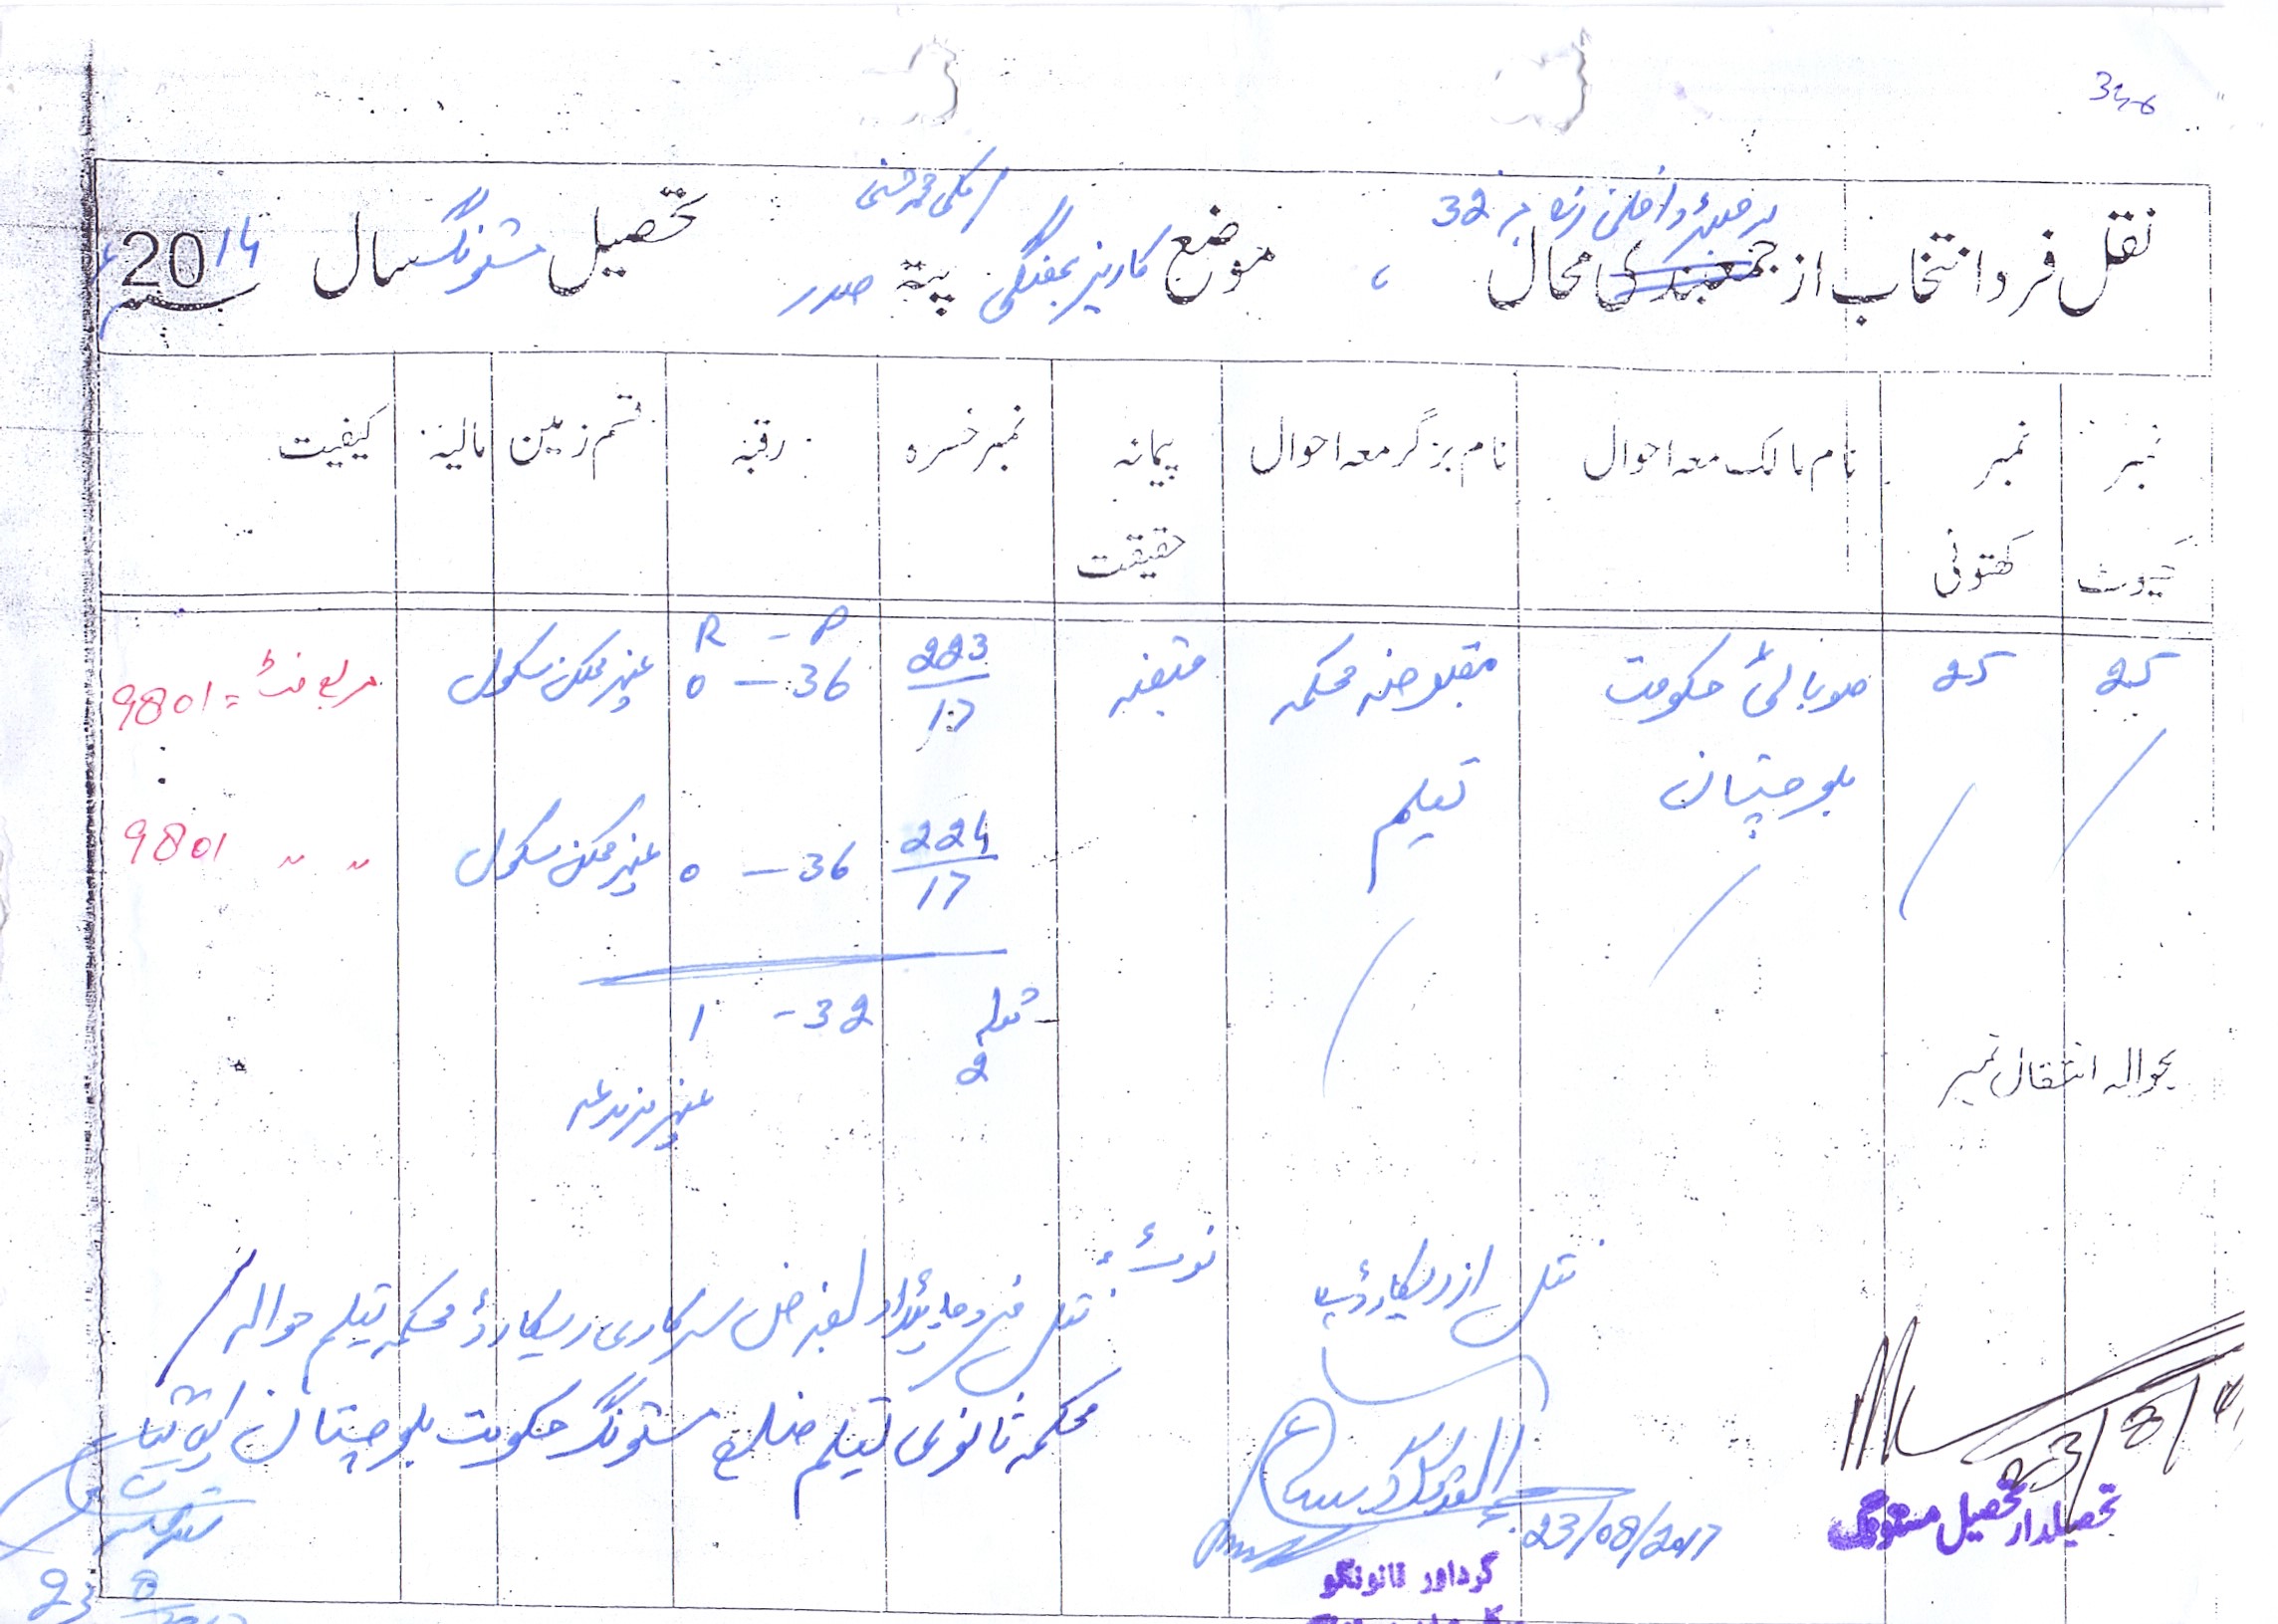 346
نقل فرد انتخاب از جمعبندی محال، موضع کاریز بھنگی پتہ صدر تحصیل مستونگ سال 2014ء
32
نمبر کھیوٹ
نمبر کھتونی
نام مالک معہ احوال
نام بزگر معہ احوال
پیمانہ حقیقت
نمبر خسرہ
رقبہ
قسم زمین
مالیہ
کیفیت
R - P
25 25 صوبائی حکومت مقبوضہ محکمہ قبضہ 223/17 0 - 36 غیر ممکن سکول مربع فٹ = 9801
بلوچستان تعلیم
224/17 0 - 36 غیر ممکن سکول 〃 〃 9801
قطعہ 2 1 - 32
غیر مزروعہ
بحوالہ انتقال نمبر
نقل از ریکارڈ
نوٹ: نقل فرد جائیداد بغرض سرکاری ریکارڈ محکمہ تعلیم حوالہ
محکمہ ثانوی تعلیم ضلع مستونگ حکومت بلوچستان
23/08/2017
گرداور قانونگو
23/8/
تحصیلدار تحصیل مستونگ
23 8